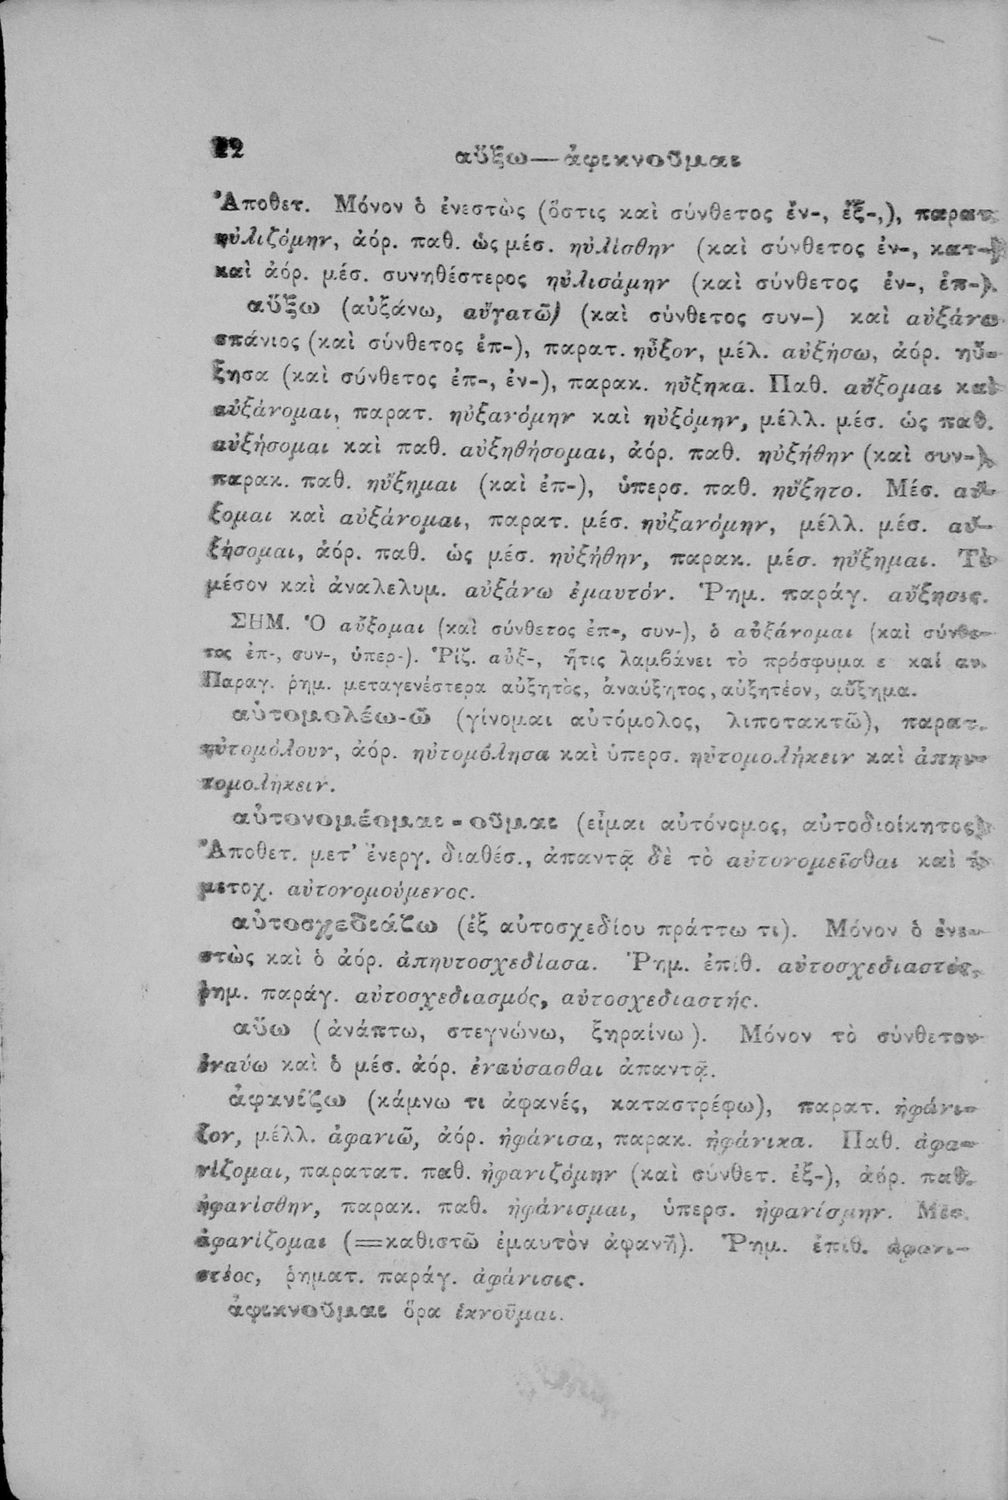 αὔξω—ἀφικνοῦμαι
Ἀποθετ. Μόνον ὁ ἐνεστὼς (ὅστις καὶ σύνθετος ἐν-, ἐξ-,), παρατ.
ηὐλιζόμην, ἀόρ. παθ. ὡς μέσ. ηὐλίσθην (καὶ σύνθετος ἐν-, κατ-)
καὶ ἀόρ. μέσ. συνηθέστερος ηὐλισάμην (καὶ σύνθετος ἐν-, ἐπ-).
αὔξω (αὐξάνω, αὐγατῶ) (καὶ σύνθετος συν-) καὶ αὐξάνω
σπάνιος (καὶ σύνθετος ἐπ-), παρατ. ηὖξον, μέλ. αὐξήσω, ἀόρ. ηὔ-
ξησα (καὶ σύνθετος ἐπ-, ἐν-), παρακ. ηὔξηκα. Παθ. αὔξομαι καὶ
αὐξάνομαι, παρατ. ηὐξανόμην καὶ ηὐξόμην, μέλλ. μέσ. ὡς παθ.
αὐξήσομαι καὶ παθ. αὐξηθήσομαι, ἀόρ. παθ. ηὐξήθην (καὶ συν-),
παρακ. παθ. ηὔξημαι (καὶ ἐπ-), ὑπερσ. παθ. ηὔξητο. Μέσ. αὔ-
ξομαι καὶ αὐξάνομαι, παρατ. μέσ. ηὐξανόμην, μέλλ. μέσ. αὐ-
ξήσομαι, ἀόρ. παθ. ὡς μέσ. ηὐξήθην, παρακ. μέσ. ηὔξημαι. Τὸ
μέσον καὶ ἀναλελυμ. αὐξάνω ἐμαυτόν. Ῥημ. παράγ. αὔξησις.
ΣΗΜ. Ὁ αὔξομαι (καὶ σύνθετος ἐπ-, συν-), ὁ αὐξάνομαι (καὶ σύνθε-
τος ἐπ-, συν-, ὑπερ-). Ῥίζ. αὐξ-, ἥτις λαμβάνει τὸ πρόσφυμα ε καί αν.
Παραγ. ῥημ. μεταγενέστερα αὐξητὸς, ἀναύξητος, αὐξητέον, αὔξημα.
αὐτομολέω-ῶ (γίνομαι αὐτόμολος, λιποτακτῶ), παρατ.
ηὐτομόλουν, ἀόρ. ηὐτομόλησα καὶ ὑπερσ. ηὐτομολήκειν καὶ ἀπηυ-
τομολήκειν.
αὐτονομέομαι - οῦμαι (εἶμαι αὐτόνομος, αὐτοδιοίκητος)
Ἀποθετ. μετ' ἐνεργ. διαθέσ., ἀπαντᾷ δὲ τὸ αὐτονομεῖσθαι καὶ ἡ
μετοχ. αὐτονομούμενος.
αὐτοσχεδιάζω (ἐξ αὐτοσχεδίου πράττω τι). Μόνον ὁ ἐνε-
στὼς καὶ ὁ ἀόρ. ἀπηυτοσχεδίασα. Ῥημ. ἐπιθ. αὐτοσχεδιαστός,
ῥημ. παράγ. αὐτοσχεδιασμός, αὐτοσχεδιαστής.
αὔω (ἀνάπτω, στεγνώνω, ξηραίνω). Μόνον τὸ σύνθετον
ἐναύω καὶ ὁ μέσ. ἀόρ. ἐναύσασθαι ἀπαντᾷ.
ἀφανίζω (κάμνω τι ἀφανές, καταστρέφω), παρατ. ἠφάνι-
ζον, μέλλ. ἀφανιῶ, ἀόρ. ἠφάνισα, παρακ. ἠφάνικα. Παθ. ἀφα-
νίζομαι, παρατατ. παθ. ἠφανιζόμην (καὶ σύνθετ. ἐξ-), ἀόρ. παθ.
ἠφανίσθην, παρακ. παθ. ἠφάνισμαι, ὑπερσ. ἠφανίσμην. Μέσ.
ἀφανίζομαι (=καθιστῶ ἐμαυτὸν ἀφανῆ). Ῥημ. ἐπιθ. ἀφανι-
στέος, ῥηματ. παράγ. ἀφάνισις.
ἀφικνοῦμαι ὅρα ἱκνοῦμαι.